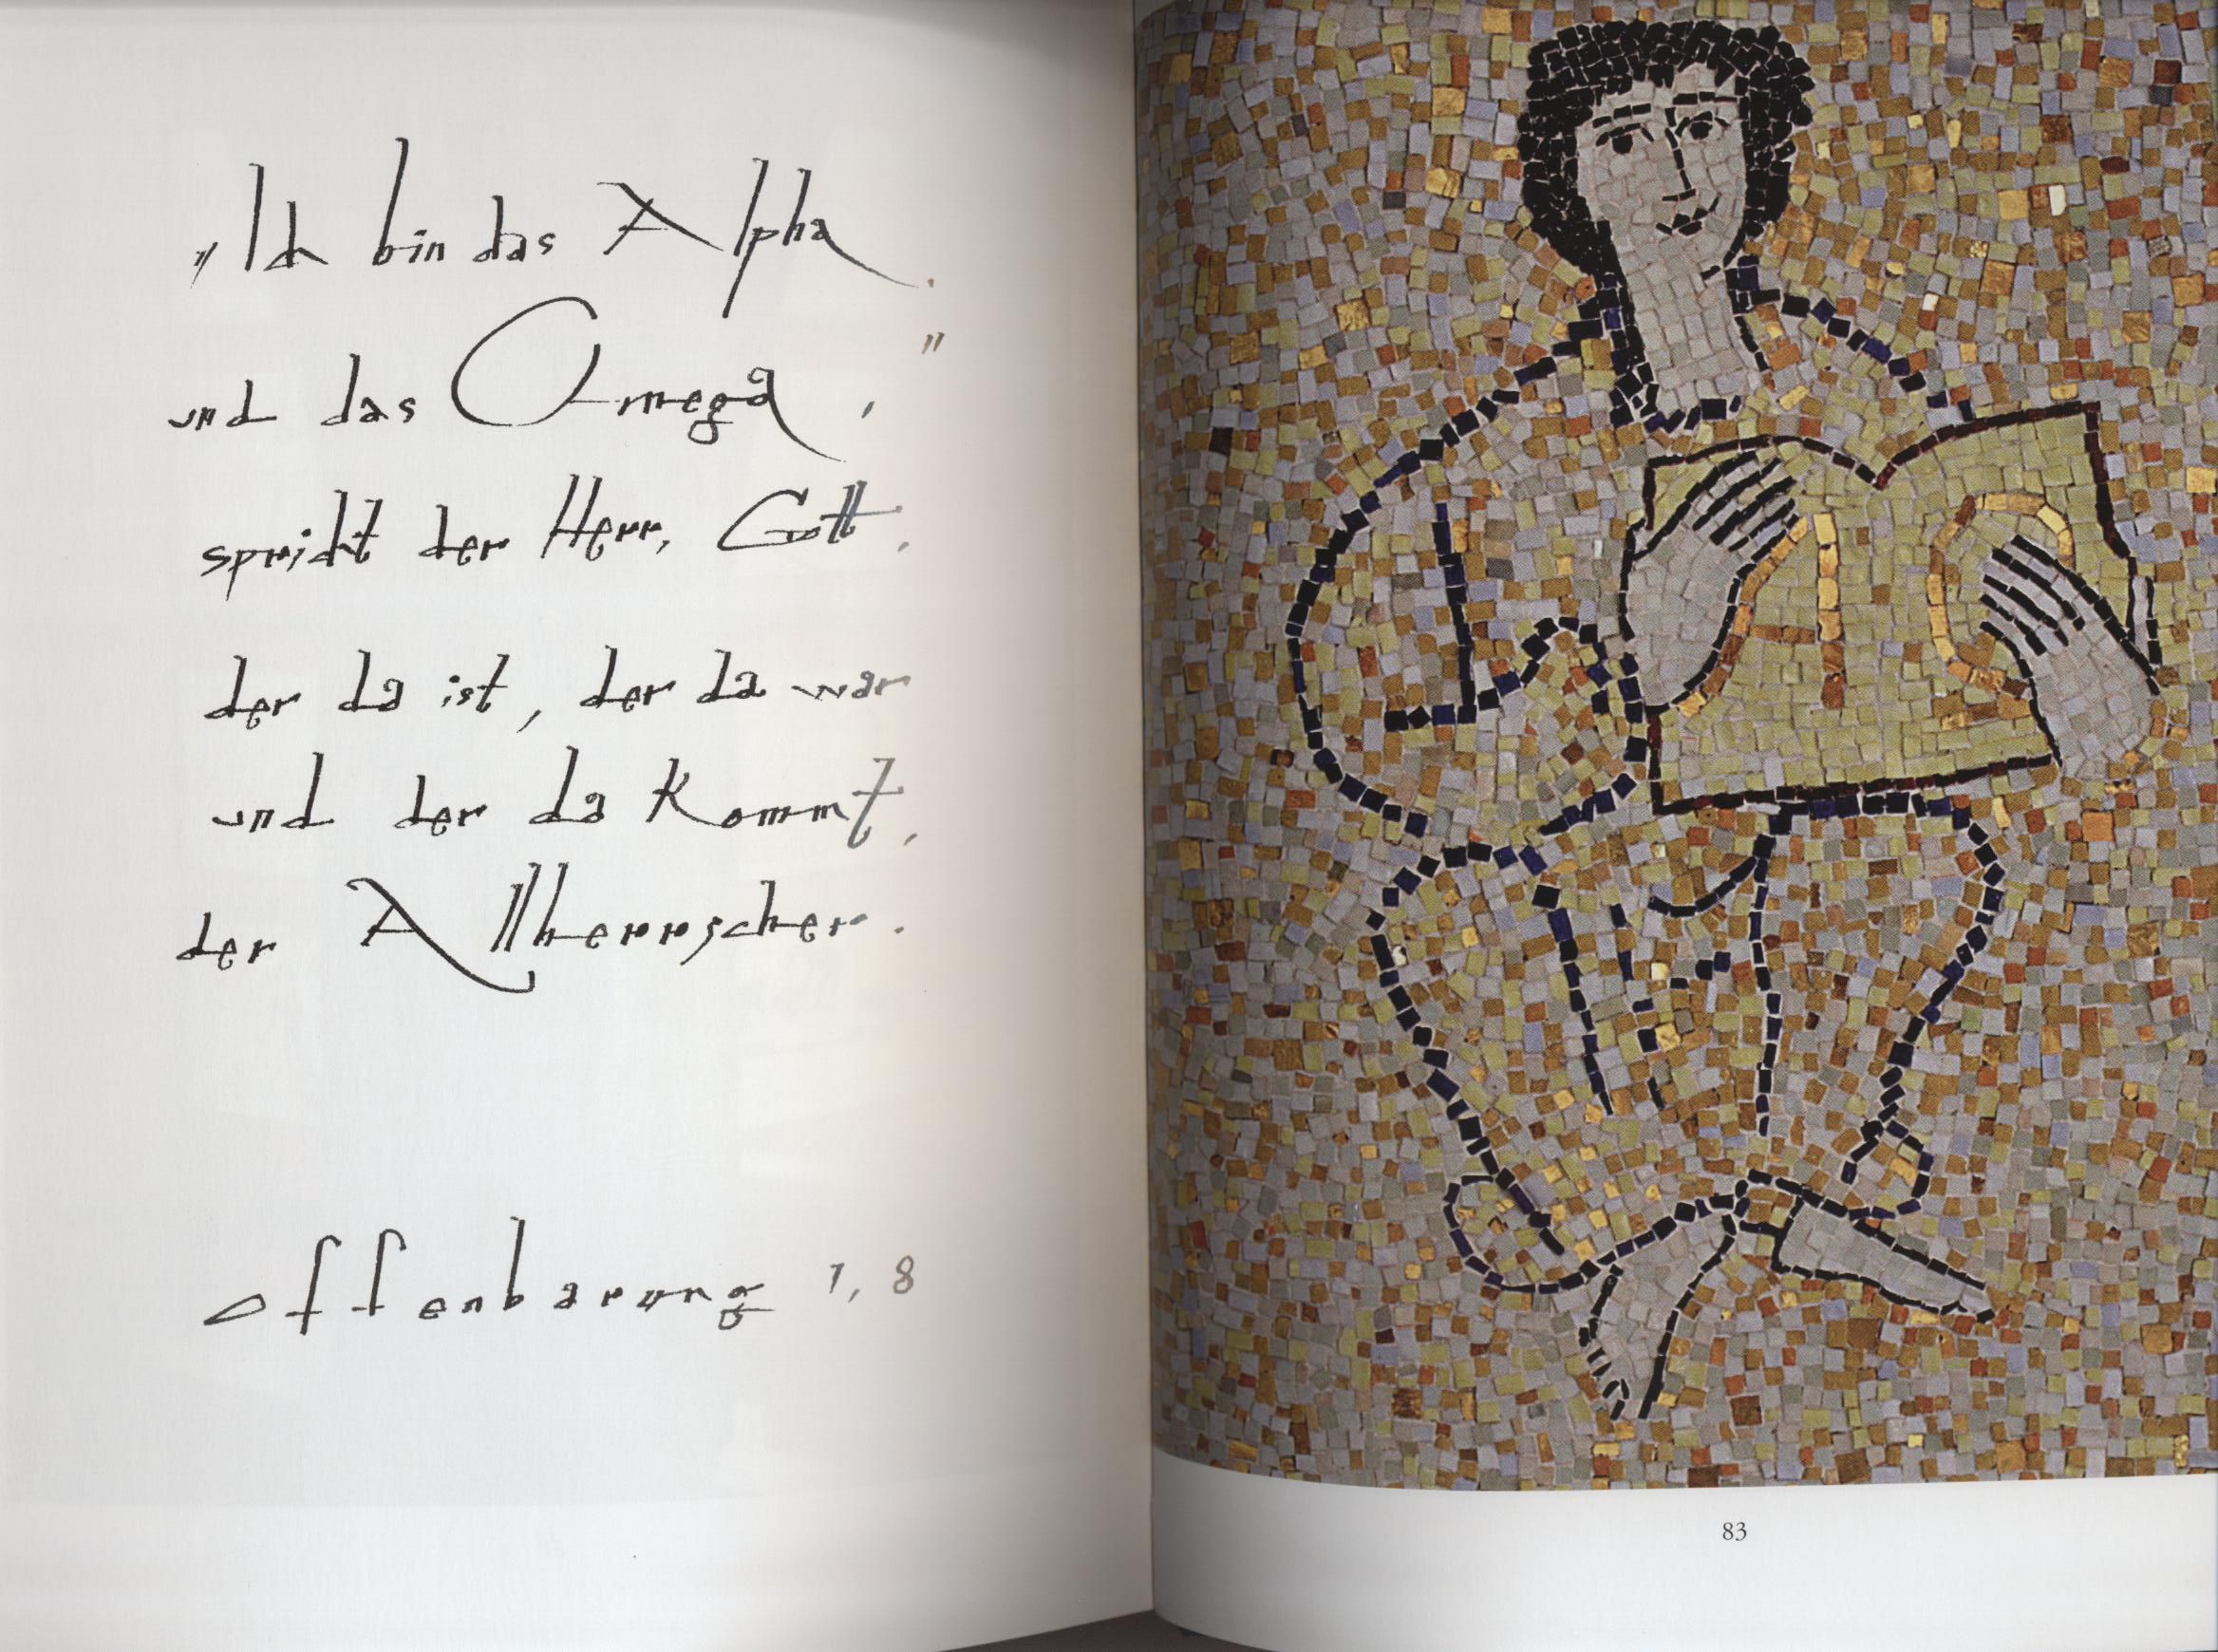 „Ich bin das Alpha
und das Omega,"
spricht der Herr, Gott,
der da ist, der da war
und der da kommt,
der Allherrscher.
Offenbarung 1, 8
83